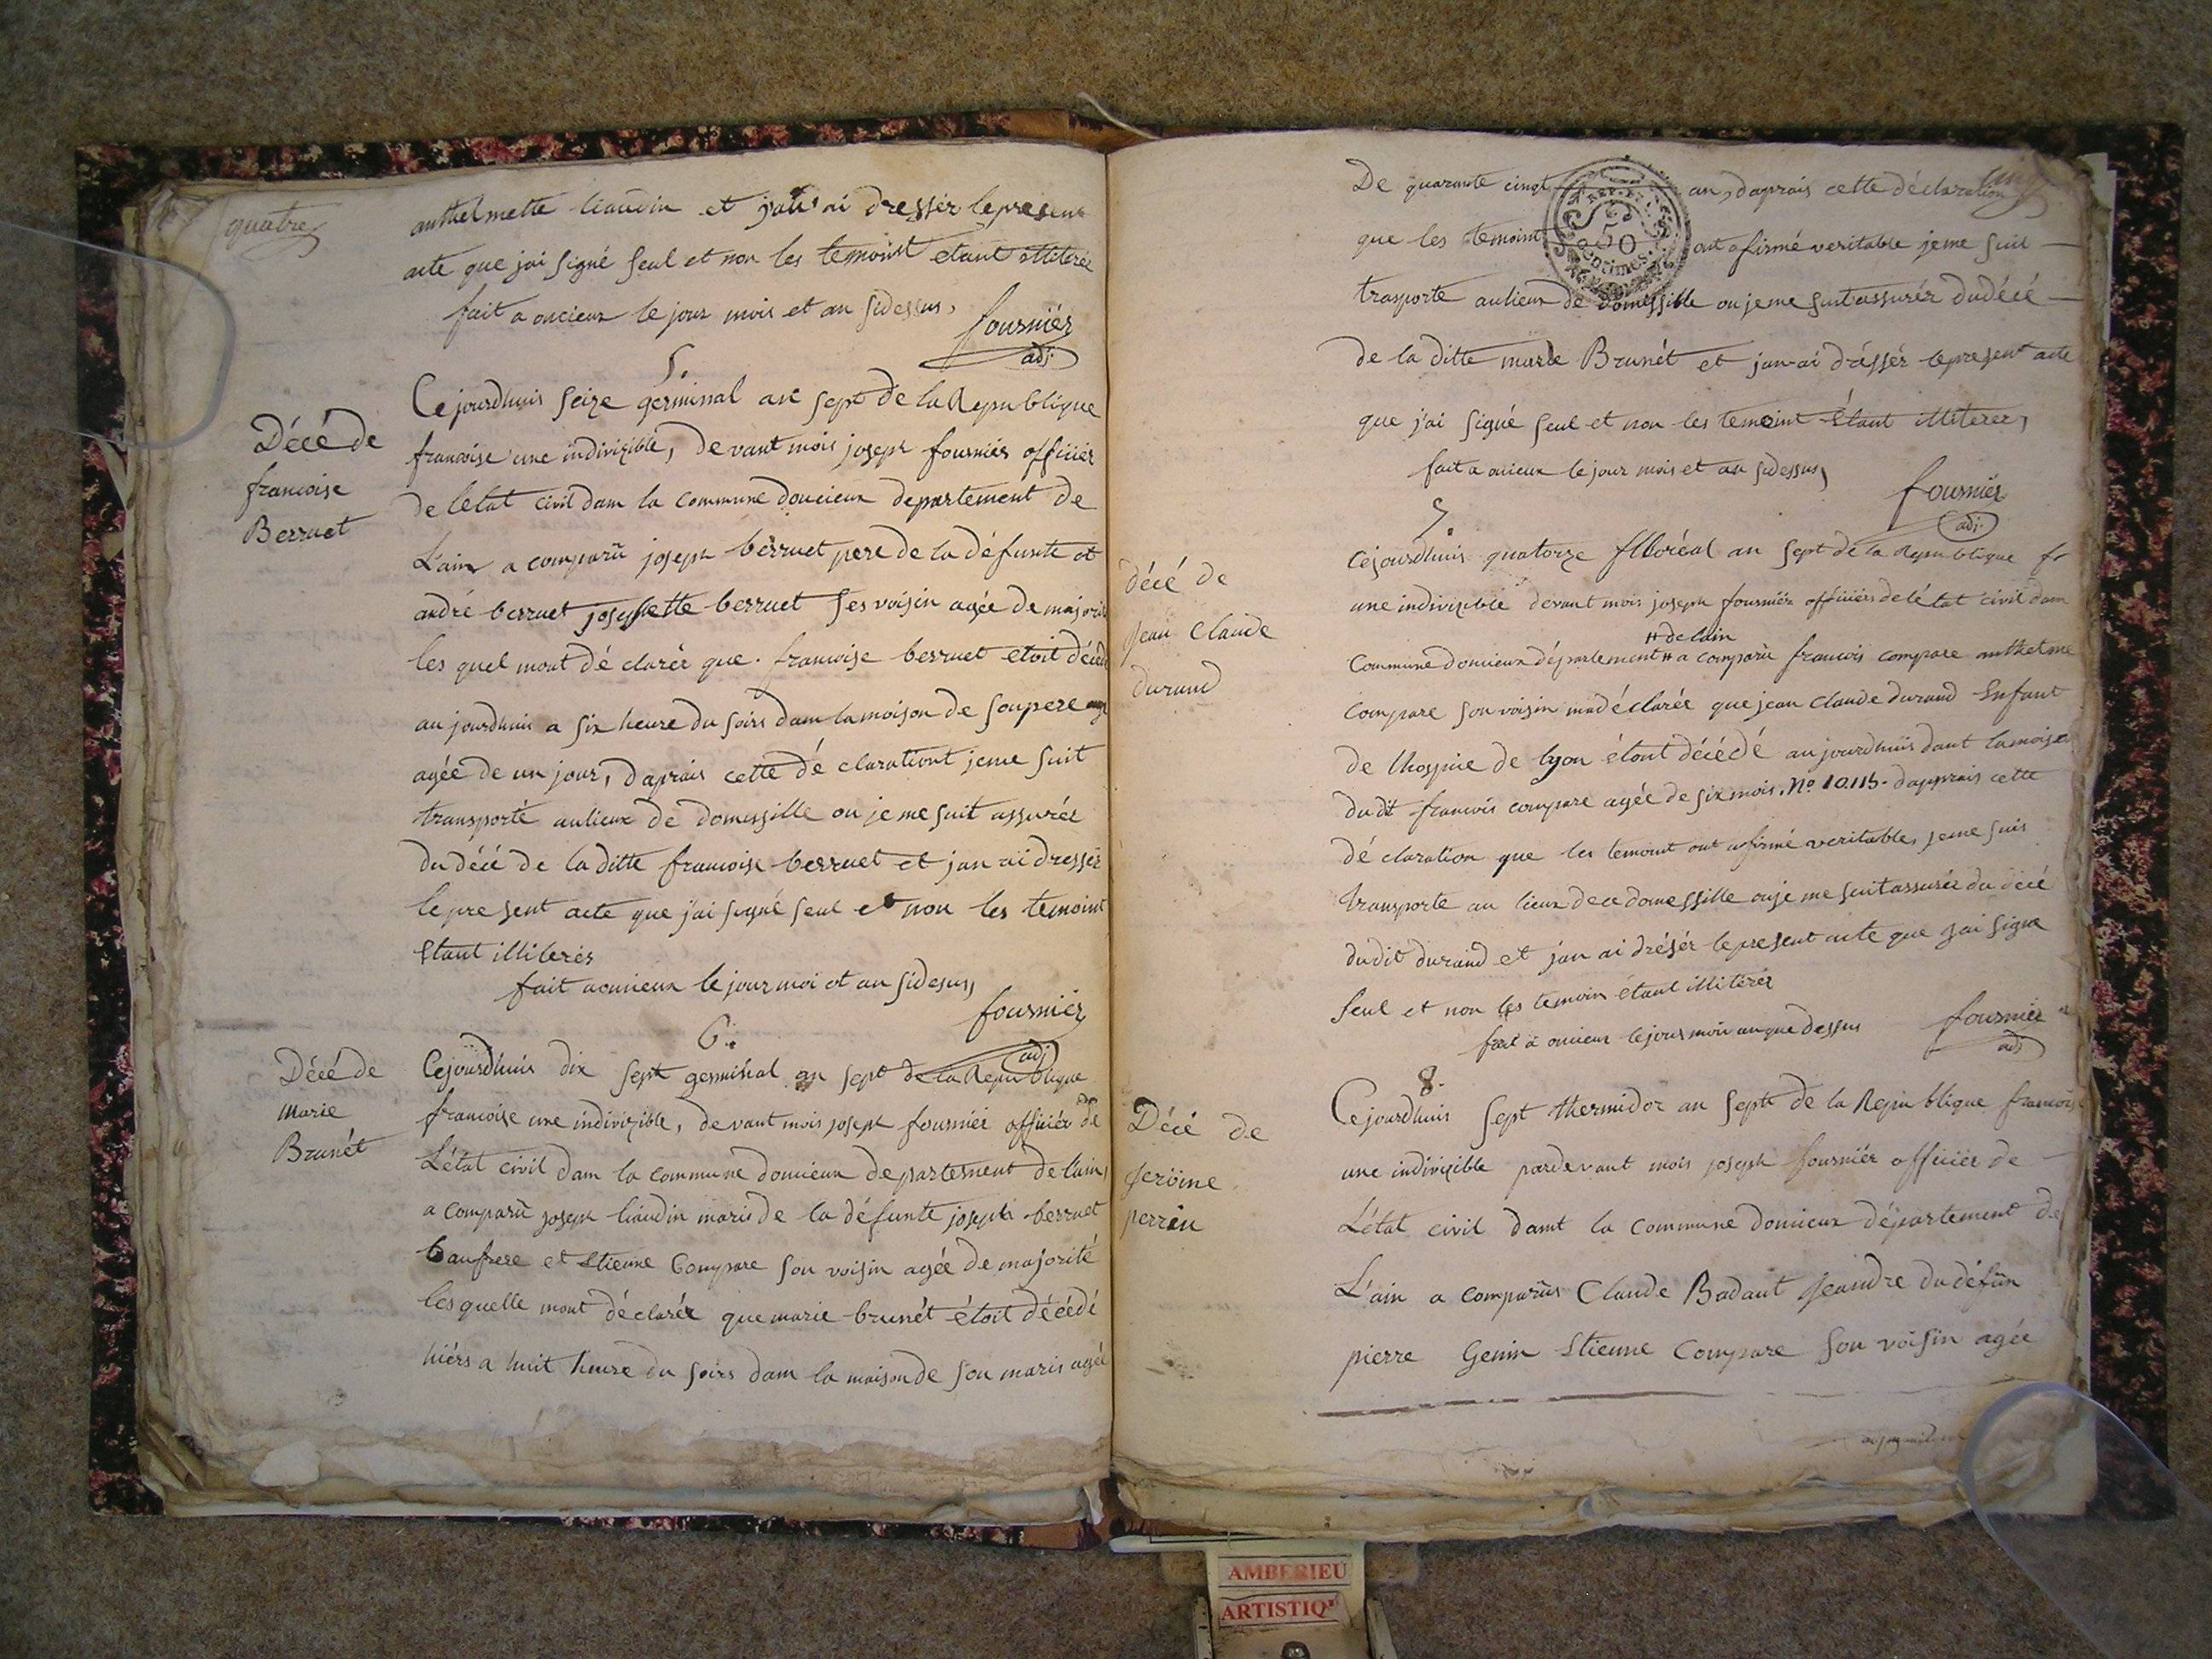 quatre
anthelmette liaudin et jan ai dressér lepresent
acte que jai signé seul et non les temoint etant illiterée
fait a oncieux le jour mois et an sidessus,
fourniér
adj
5.
Décé de
francoise
Berruet
Cejourdhuis seize germinal an sept de la Republique
francoise une indivizible, devant mois joseph fourniér officiér
de letat civil dam la commune doncieux departement de
L'ain a comparü joseph berruet pere de la défunte et
andré berruet josephette berruet ses voisin agée de majorité
les quel mont dé clarér que francoise berruet etoit décedé
au jourdhuis a six heure du soirs dam lamoison de sonpere
agée de un jour, daprais cette dé claration jeme suit
transporté aulieux de domissille ou je me suit assurér
du décé de la ditte francoise berruet et jan ai dressér
lepresent acte que j'ai signé seul et non les temoint
Etant illiterés
fait aoncieux le jour moi et an sidesus,
fourniér
adj
6.
Décé de
Marie
Brunét
Cejourdhuis dix sept germinal an sept de la Republique
francoise une indivizible, devant mois joseph fourniér officiér de
L'état civil dam la commune doncieux departement de lain,
a comparü joseph liaudin maris de la défunte joseph berruet
baufrere et Etienne Compare son voisin agée de majorité
lesquelle mont déclarér que marie brunét étoit décédé
hiérs a huit heure du soirs dam la maison de son maris agée
cinq
De quarante cinqt an, daprais cette déclaration
50
Centimes
que les temoint ont afirmé veritable jeme suit
trasporte aulieux de domissille ou jeme suit assurér dudécé
de la ditte marie Brunét et jan ai dréssér lepresent acte
que j'ai signé seul et non les temoint Etant illiterer,
fait a oncieux le jour mois et an sidessus,
fourniér
adj.
7.
décé de
Jean Claude
durand
Cejourdhuis quatorze flloréal an sept de la Republique fr
une indivizible devant mois joseph fourniér officiér de létat civil dam
# de lain
Commune doncieux département # a comparü francois compare anthelme
Compare son voisin madéclarée que jean claude durand Enfant
de lhospice de lyon étont décédé au jourdhuis dant lamoison
dudit francois compare agée de six mois. No 10.115. dapprais cette
dé claration que les temoint ont afirmé veritable, jeme suis
transporte au lieux de ce domessille ou je me suit assurée du décé
dudit durand et jan ai drésér lepresent acte que jai signé
seul et non les temoin étant illitérér
fait a oncieux lejours mois anque dessus
fourniér
adj
8.
Décé de
Jeröme
perrin
Cejourdhuis sept thermidor an sept de la Republique francois
une indivizible pardevant mois joseph fourniér officiér de
L'état civil damt la commune doncieux département de
L'ain a comparüs Claude Badaut Jeandre du défün
pierre Genin Etienne Compare son voisin agée
AMBERIEU
ARTISTIQ